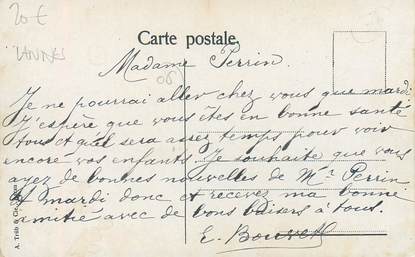 20 €
Carte postale.
Madame Perrin.
06
Je ne pourrai aller chez vous que mardi
J'espère que vous êtes en bonne santé
tous et qu'il sera assez temps pour voir
encore vos enfants. Je souhaite que vous
ayez de bonnes nouvelles de Mr Perrin
A mardi donc et recevez ma bonne
amitié avec de bons baisers à tous.
E.
A. Trüb & Cie.